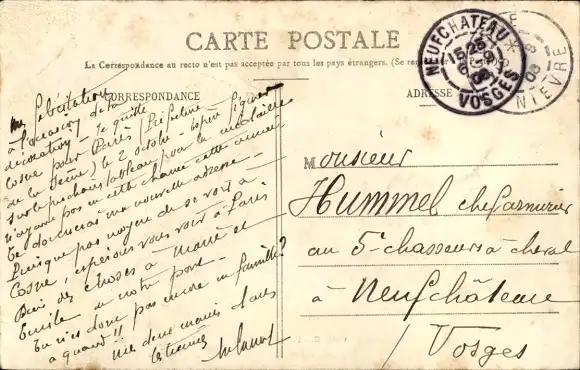 CARTE POSTALE
La Correspondance au recto n'est pas acceptée par tous les pays étrangers. (Se
CORRESPONDANCE
ADRESSE
NEUFCHATEAU
VOSGES
NIEVRE
félicitation
à l'occasion de la
décoration - Je quitte
Cosne pour Paris (Préfecture
de la Seine) le 2 octobre
sur le prochain tableau pour la médaille
n'ayant pas eu cette chance cette année
Te donnerai ma nouvelle adresse -
Puisque pas moyen de se voir à
Cosne, espérons vous voir à Paris
Bien des choses à Marie et
Emile de notre part -
Tu n'es donc pas encore en famille?
à quand!!
Mes deux mains dans
les tiennes
Monsieur
Hummel chef armurier
au 5e chasseurs à cheval
à Neufchâteau
Vosges